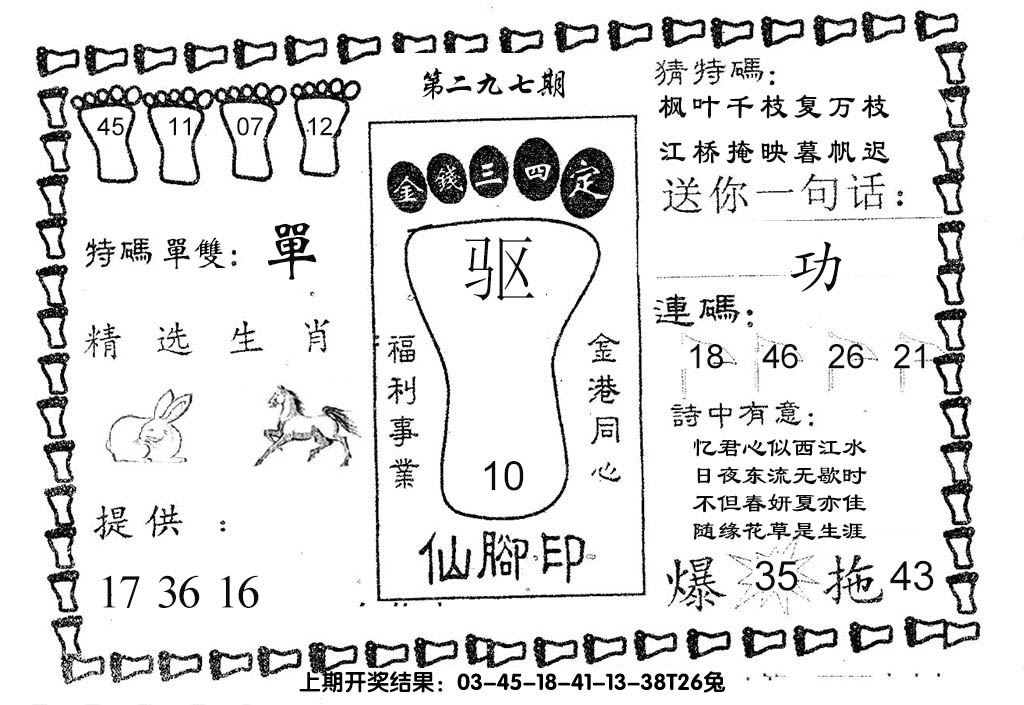 第二九七期
45 11 07 12
特碼單雙：單
精选生肖
提供：
17 36 16
金錢三四定
驱
福利事業
金港同心
10
仙腳印
猜特碼：
枫叶千枝复万枝
江桥掩映暮帆迟
送你一句话：
功
連碼：
18 46 26 21
詩中有意：
忆君心似西江水
日夜东流无歇时
不但春妍夏亦佳
随缘花草是生涯
爆 35 拖 43
上期开奖结果：03-45-18-41-13-38T26兔